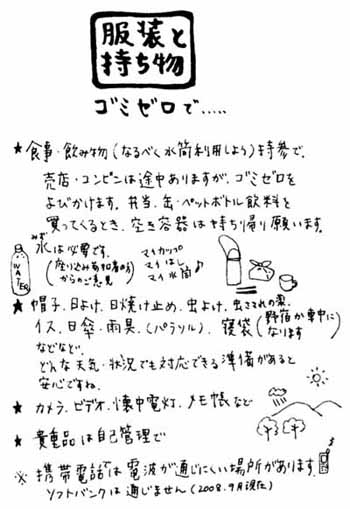 服装と
持ち物
ゴミゼロで.....
★食事・飲み物(なるべく水筒利用しよう)持参で、
売店・コンビニは途中ありますが、ゴミゼロを
よびかけます。弁当、缶・ペットボトル飲料を
買ってくるとき、空き容器は持ち帰り願います。
水は必要です。
みず
(座り込み参加者の方
からのご意見)
WATER
マイカップ
マイはし
マイ水筒♪
★帽子、日よけ、日焼け止め、虫よけ、虫さされの薬、
イス、日傘・雨具、(パラソル)、寝袋(野宿か車中に
なります)
などなど。
どんな天気・状況でも対応できる準備があると
安心ですね。
★カメラ、ビデオ、懐中電灯、メモ帳など
★貴重品は自己管理で
※携帯電話は電波が通じにくい場所があります。
ソフトバンクは通じません(2008.9月現在)